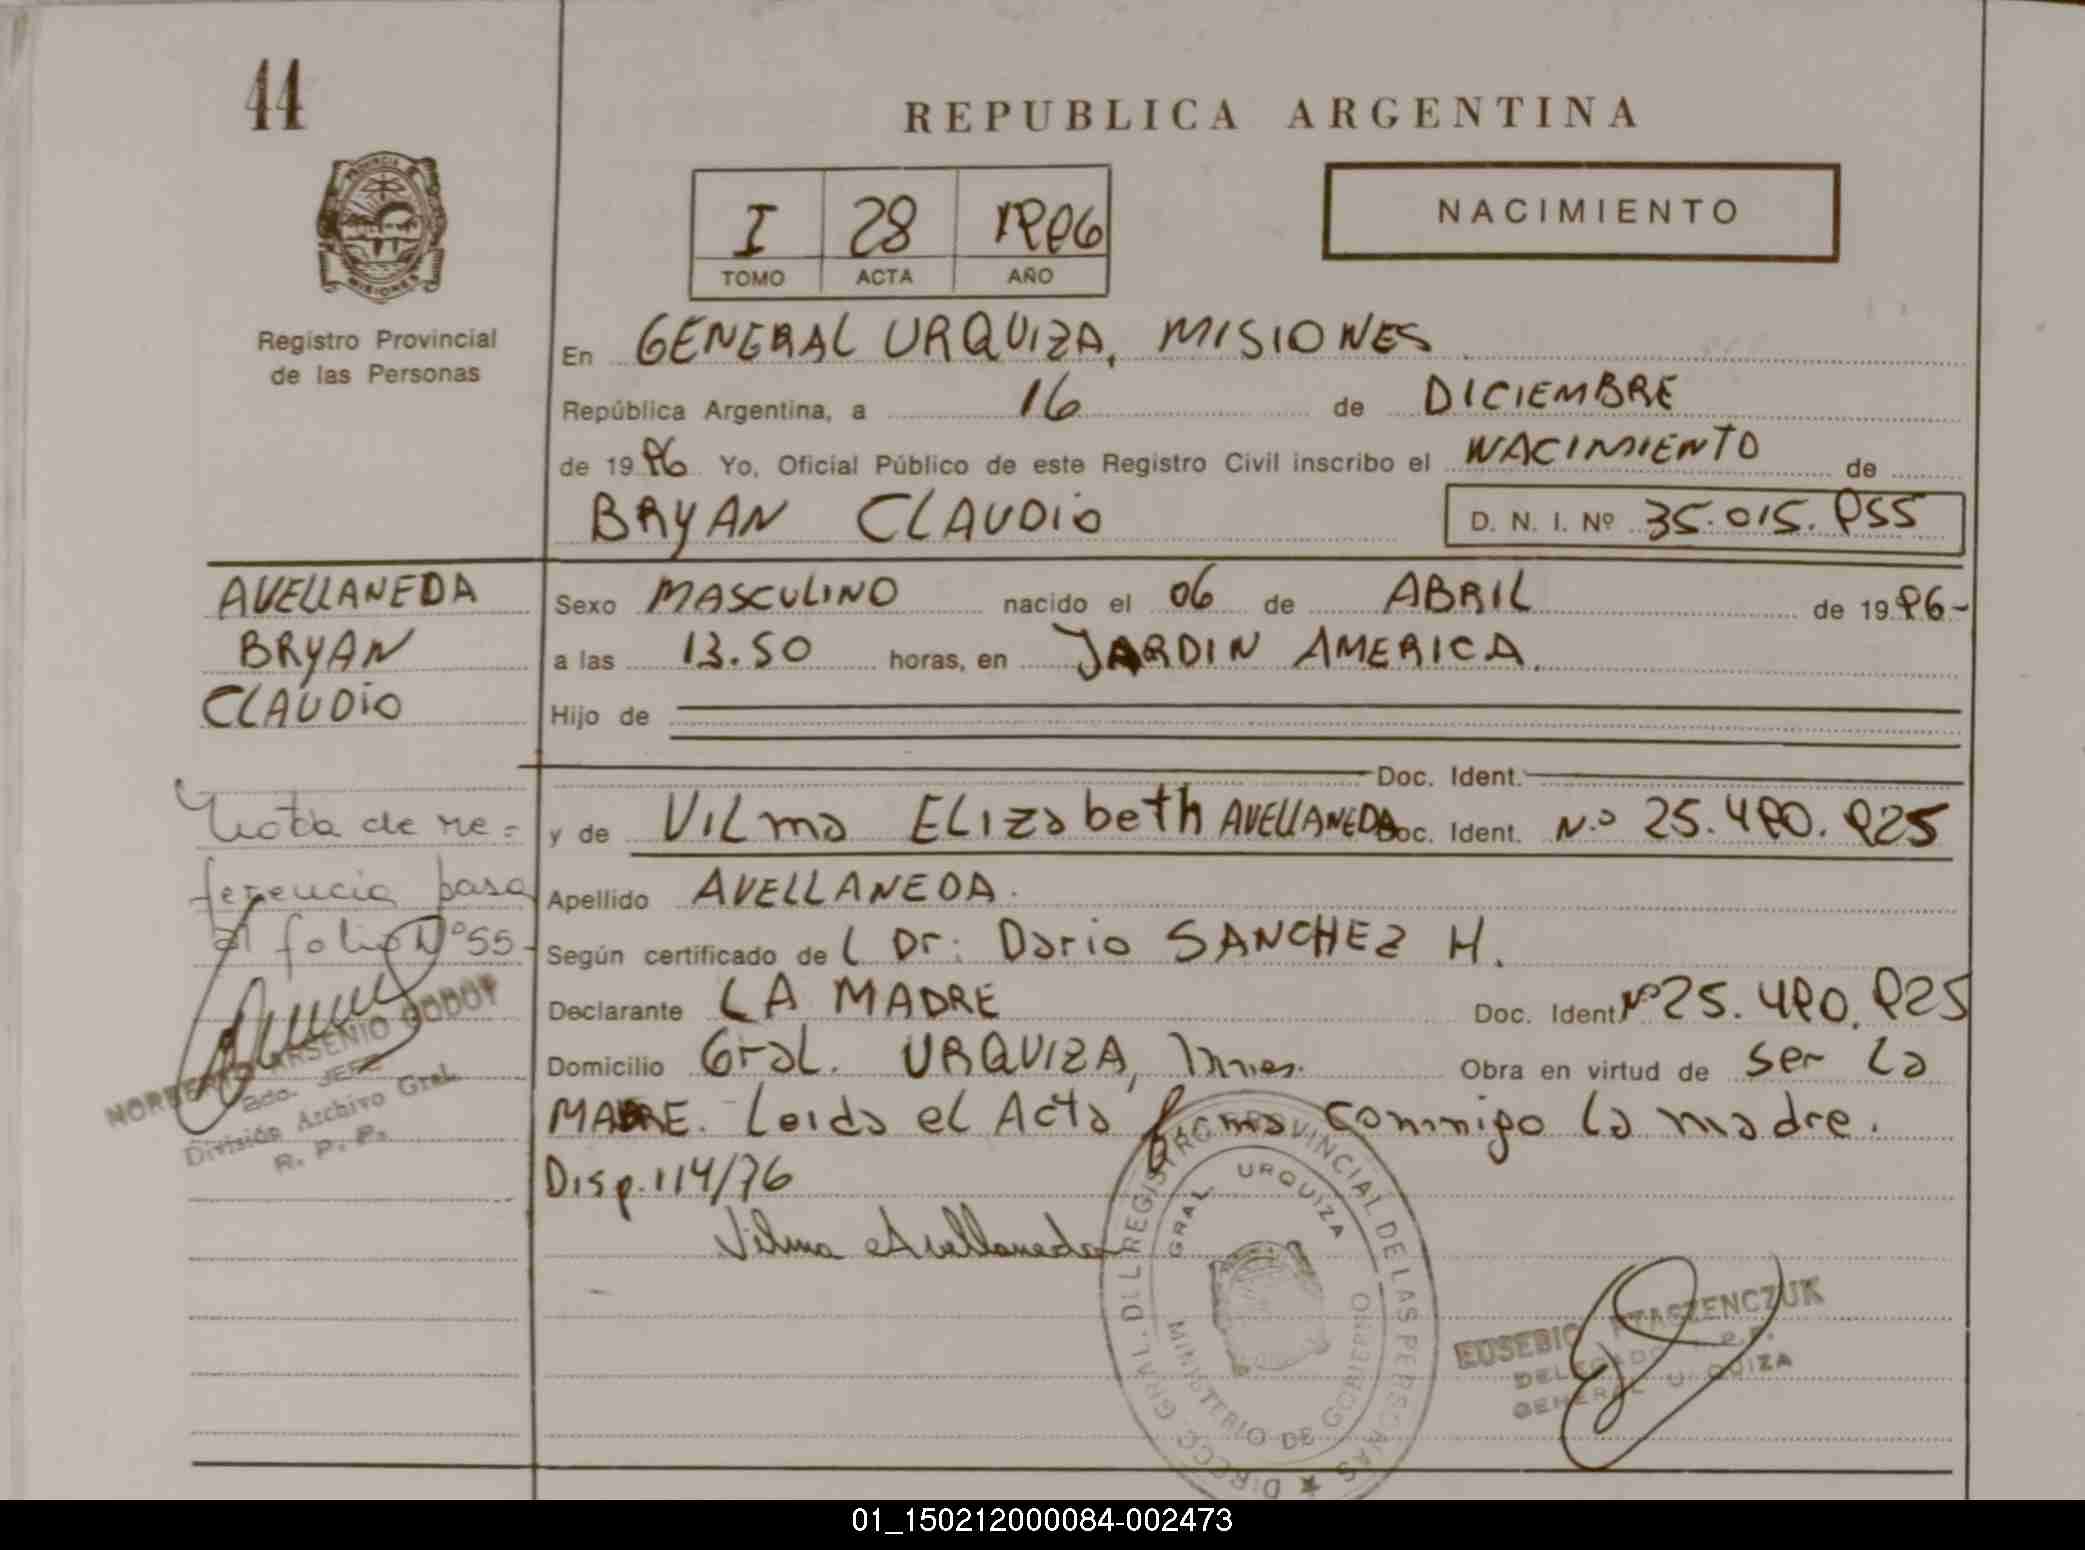 44
REPUBLICA ARGENTINA
PROVINCIA DE MISIONES
I 28 1996
TOMO ACTA AÑO
NACIMIENTO
Registro Provincial
de las Personas
En GENERAL URQUIZA, MISIONES
República Argentina, a 16 de DICIEMBRE
de 1996 Yo, Oficial Público de este Registro Civil inscribo el NACIMIENTO de
BRYAN CLAUDIO D. N. I. Nº 35.015.955
AVELLANEDA
BRYAN
CLAUDIO
Sexo MASCULINO nacido el 06 de ABRIL de 1996-
a las 13.50 horas, en JARDIN AMERICA.
Hijo de
Doc. Ident.
y de Vilma Elizabeth AVELLANEDA Doc. Ident. N.º 25.490.925
Apellido AVELLANEDA.
Según certificado de l Dr: Dario SANCHEZ H.
Declarante LA MADRE Doc. Ident. Nº 25.490.925
Domicilio Gral. URQUIZA, Mnes. Obra en virtud de ser la
MADRE. Leida el Acta firma conmigo la madre.
Disp. 114/76
Vilma Avellaneda
Nota de re-
ferencia pasa
al folio Nº 55-
NORBERTO ARSENIO GODOY
2do. JEFE
División Archivo Gral.
R. P. P.
DIRECC. GRAL. DEL REGISTRO PROVINCIAL DE LAS PERSONAS
GRAL URQUIZA
MINISTERIO DE GOBIERNO
EUSEBIO PTASZENCZUK
DELEGADO
GENERAL URQUIZA
01_150212000084-002473